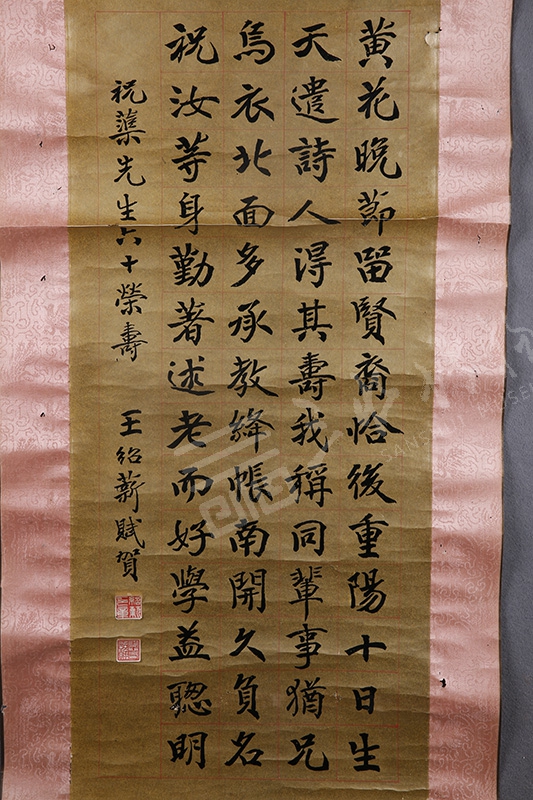 黄花晚節留賢裔恰後重陽十日生
天遣詩人得其壽我稱同輩事猶兄
烏衣北面多承教絳帳南開久負名
祝汝等身勤著述老而好學益聰明
祝蕖先生六十榮壽 王紹薪賦賀